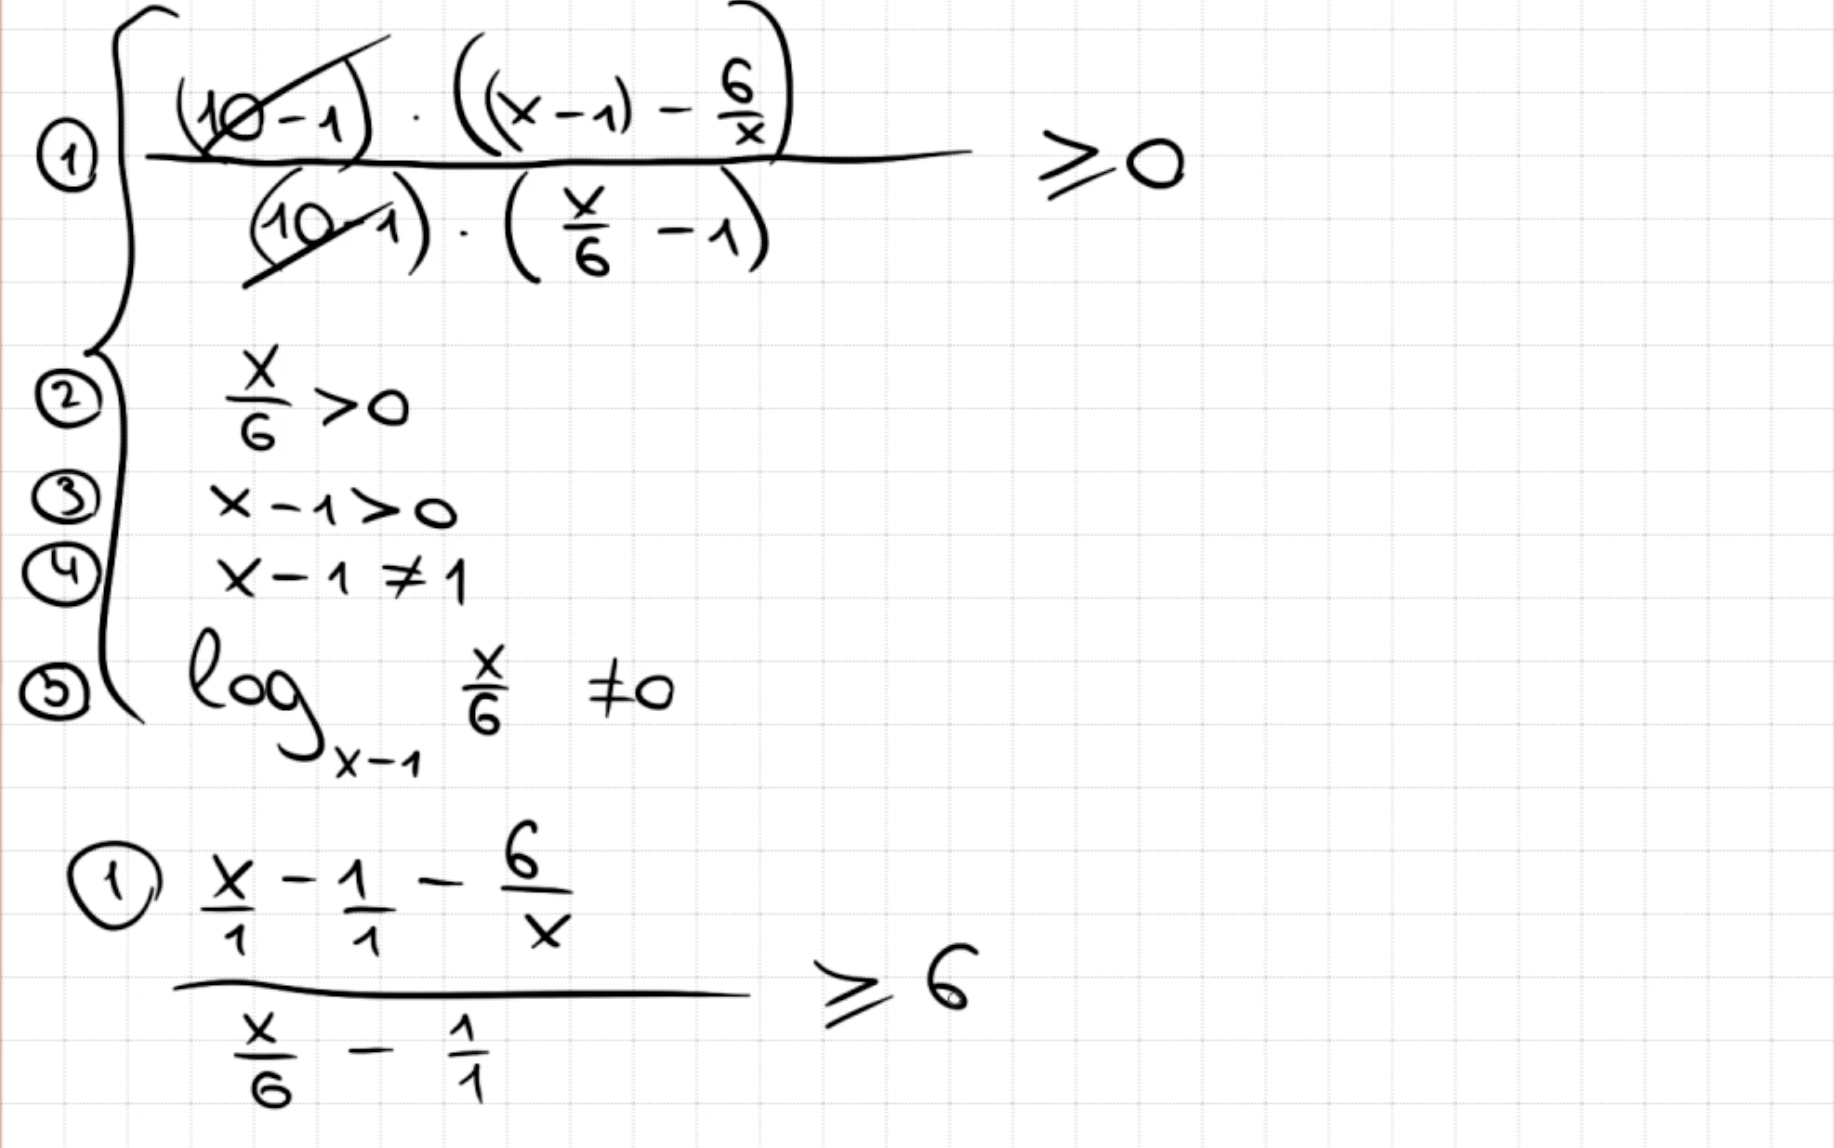 ① ((10-1) · ((x-1) - 6/x)) / ((10-1) · (x/6 - 1)) ⩾ 0
② x/6 > 0
③ x-1 > 0
④ x-1 ≠ 1
⑤ log_{x-1} x/6 ≠ 0
① (x/1 - 1/1 - 6/x) / (x/6 - 1/1) ⩾ 6